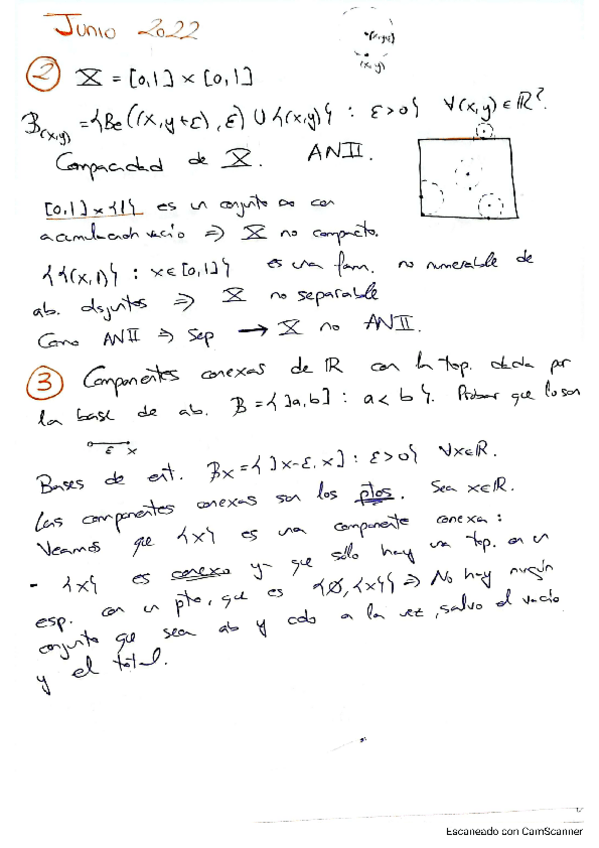 Junio 2022
(x,y+ε)
(x,y)
② X = [0,1] x [0,1]
B(x,y) = { Bε((x,y+ε), ε) ∪ {(x,y)} : ε>0} ∀(x,y) ∈ ℝ².
Compacidad de X. ANII.
[0,1] x {1} es un conjunto ∞ con
acumulación vacío ⇒ X no compacto.
{ {(x,1)} : x∈[0,1]} es una fam. no numerable de
ab. disjuntos ⇒ X no separable
Como ANII ⇒ Sep → X no ANII.
③ Componentes conexas de ℝ con la top. dada por
la base de ab. B = { ]a,b] : a < b }. Probar que lo son
ε x
Bases de ent. Bx = { ]x-ε, x] : ε>0} ∀x∈ℝ.
Las componentes conexas son los ptos. Sea x∈ℝ.
Veamos que {x} es una componente conexa :
- {x} es conexo ya que sólo hay una top. en un
esp. con un pto, que es {∅, {x}} ⇒ No hay ningún
conjunto que sea ab y cdo a la vez, salvo el vacío
y el total.
Escaneado con CamScanner